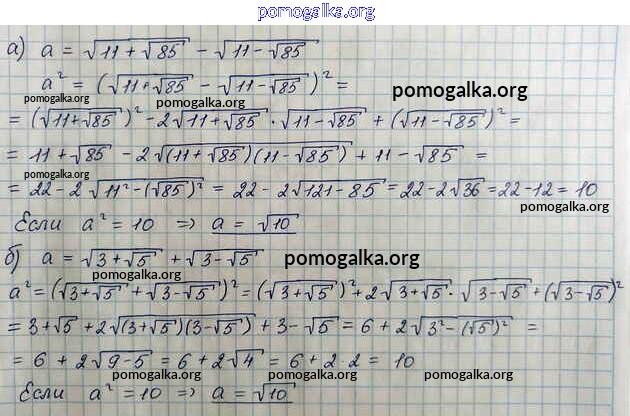 pomogalka.org
а) a = √(11 + √85) − √(11 − √85)
a² = (√(11 + √85) − √(11 − √85))² =
pomogalka.org pomogalka.org pomogalka.org
= (√(11+√85))² − 2√(11+√85) · √(11−√85) + (√(11−√85))² =
= 11 + √85 − 2√((11+√85)(11−√85)) + 11 − √85 =
pomogalka.org
= 22 − 2√(11² − (√85)²) = 22 − 2√(121 − 85) = 22 − 2√36 = 22 − 12 = 10
pomogalka.org
Если a² = 10 ⇒ a = √10
б) a = √(3 + √5) + √(3 − √5) pomogalka.org
pomogalka.org
a² = (√(3+√5) + √(3−√5))² = (√(3+√5))² + 2√(3+√5) · √(3−√5) + (√(3−√5))²
= 3+√5 + 2√((3+√5)(3−√5)) + 3 − √5 = 6 + 2√(3² − (√5)²) =
= 6 + 2√(9−5) = 6 + 2√4 = 6 + 2·2 = 10
pomogalka.org pomogalka.org pomogalka.org
Если a² = 10 ⇒ a = √10